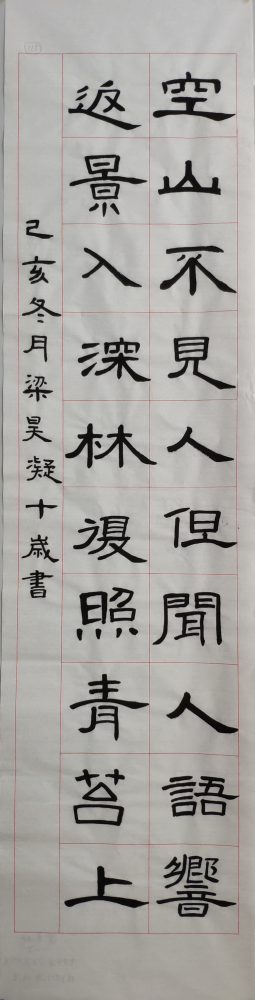 空山不見人但聞人語響
返景入深林復照青苔上
己亥冬月梁昊凝十歲書